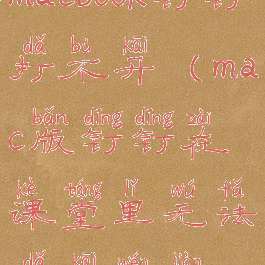 macbook钉钉
dǎ bù kāi
打不开（ma
bǎn dīng dīng zài
c版钉钉在
kè táng lǐ wú fǎ
课堂里无法
dǎ kāi wén jiàn